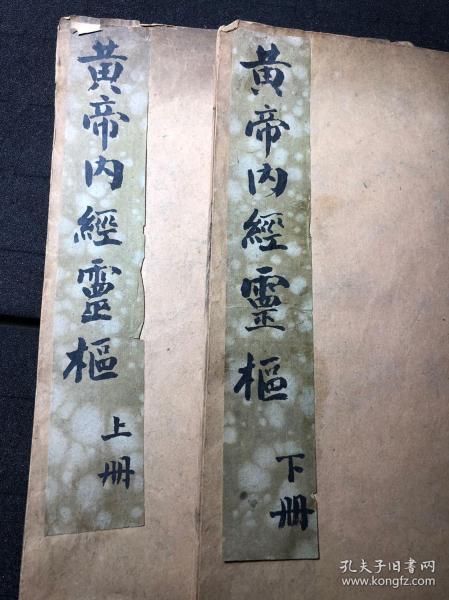 黄帝内經靈樞
上册
黄帝内經靈樞
下册
孔夫子旧书网
www.kongfz.com